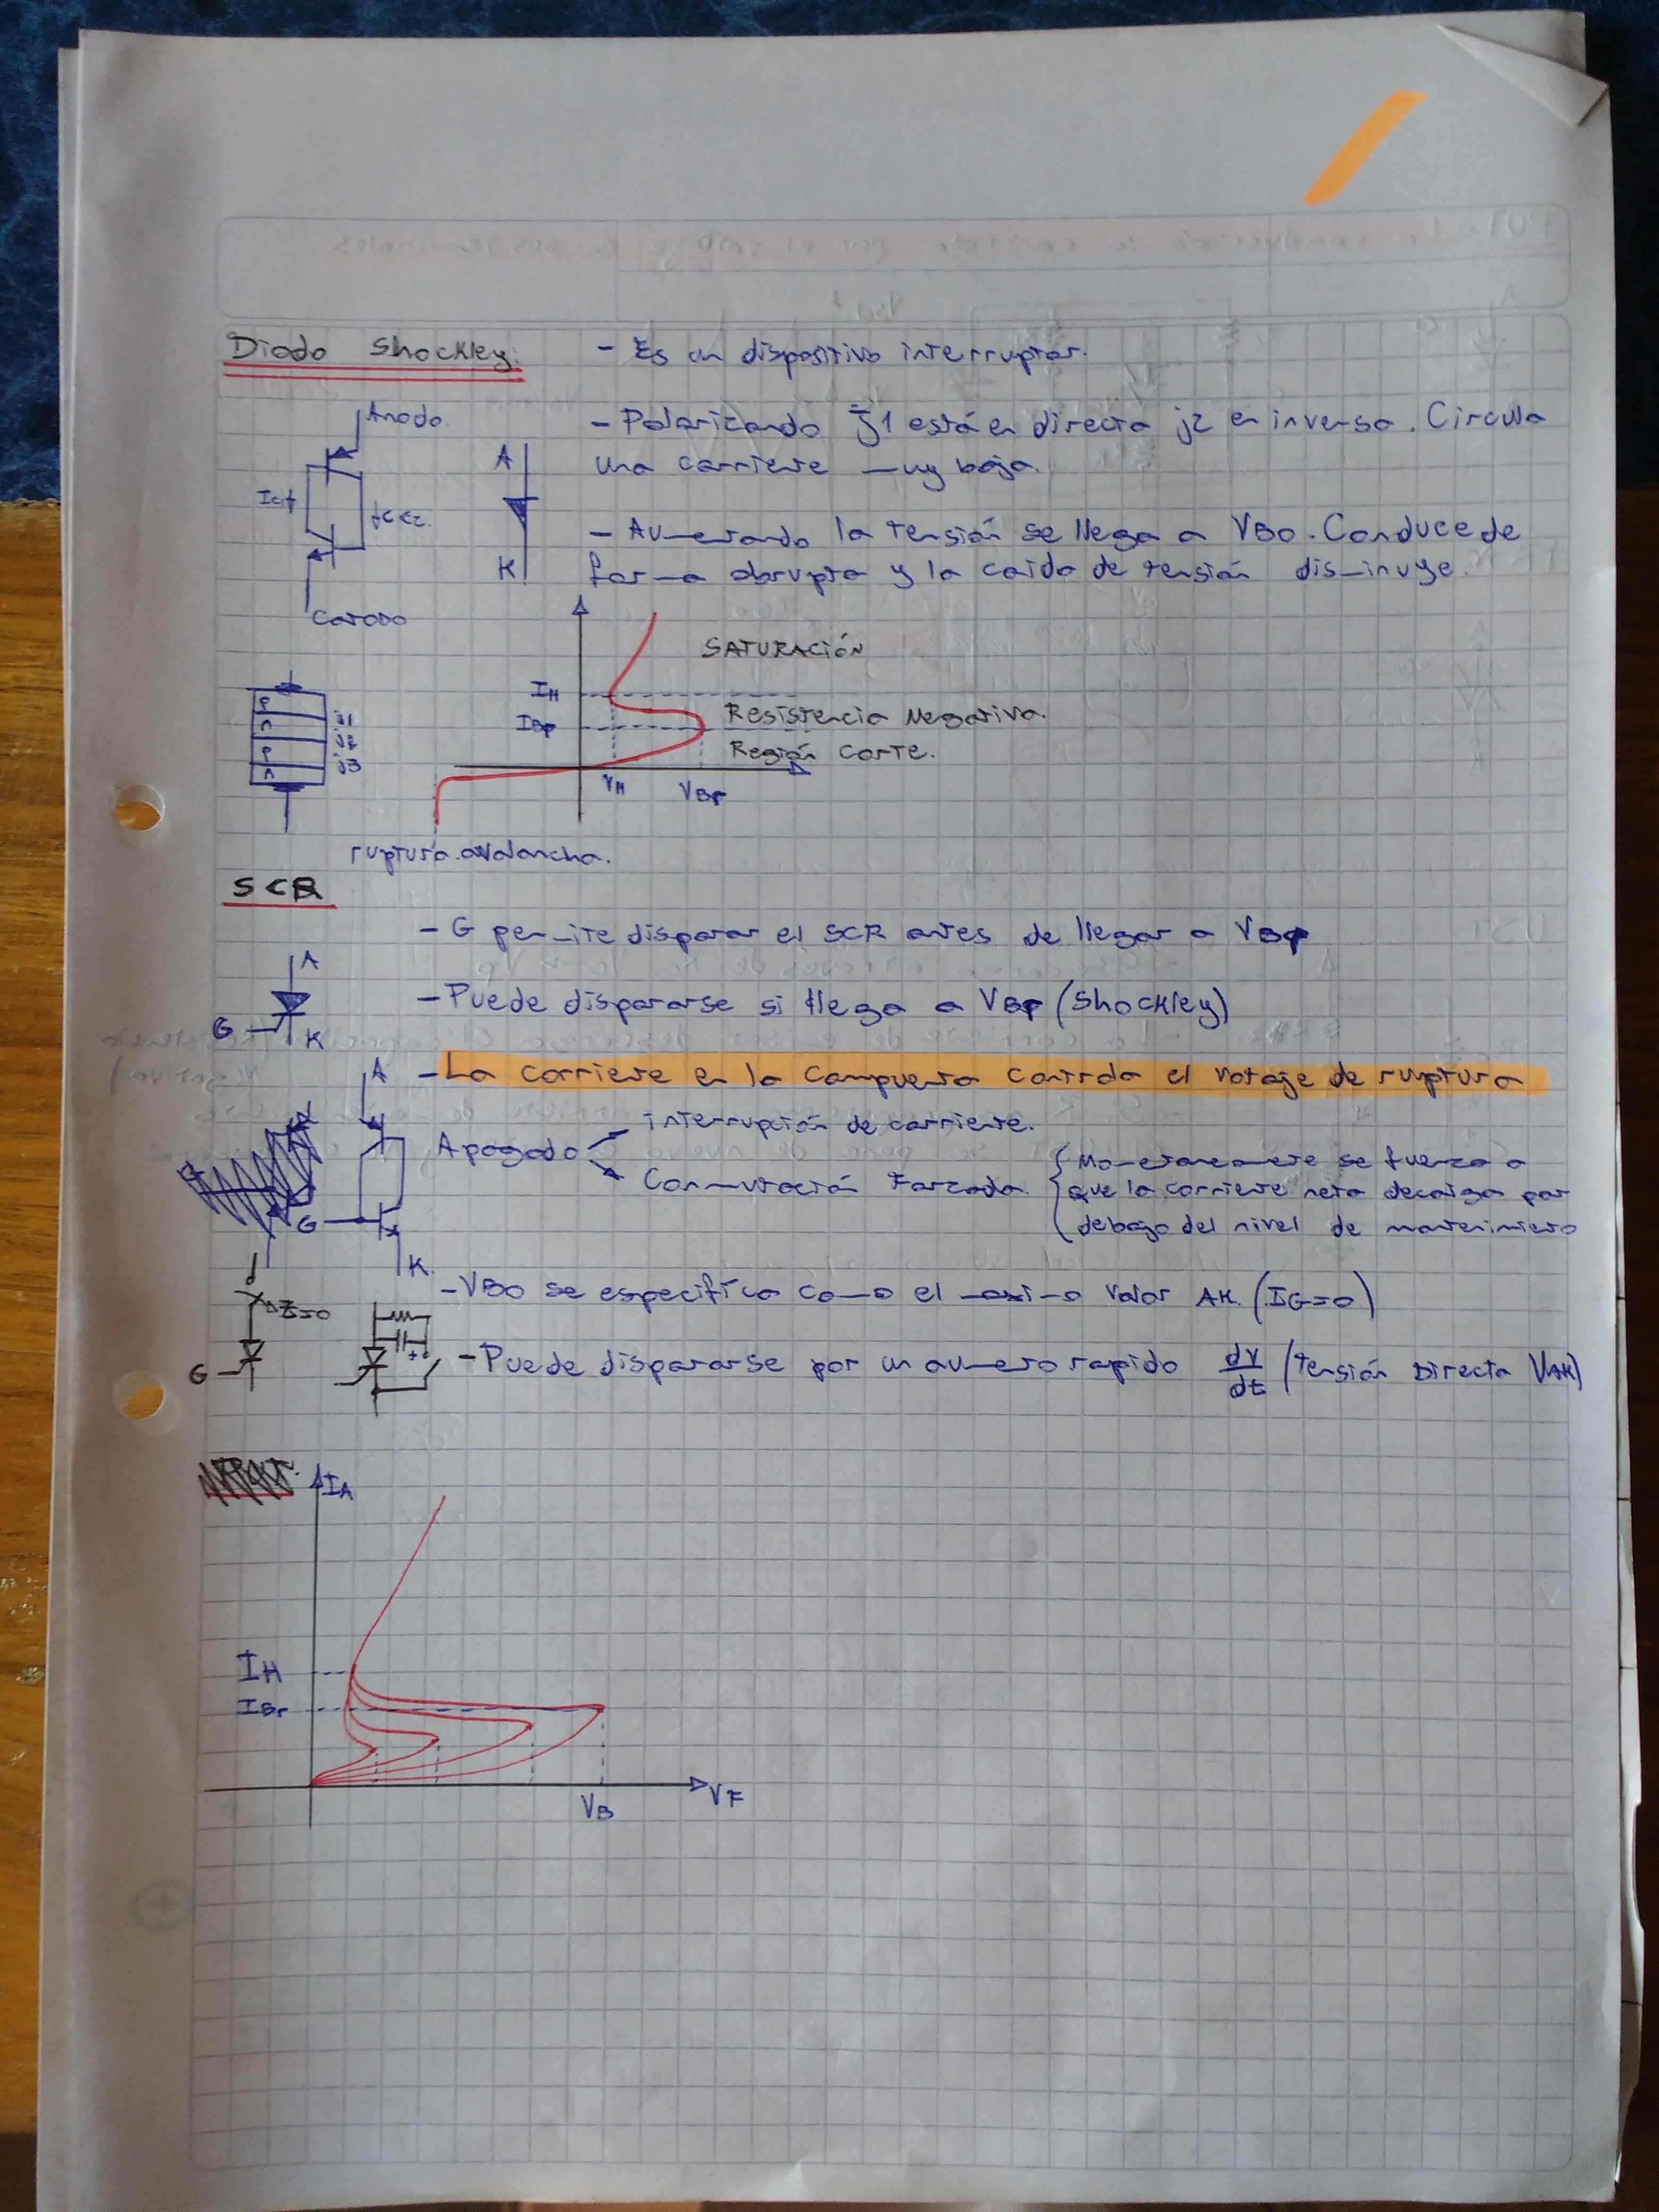 Diodo Shockley.
- Es un dispositivo interruptor.
Anodo.
- Polarizando J1 está en directa j2 en inversa. Circula
una corriente muy baja.
A
K
- Aumentando la tensión se llega a VBO. Conduce de
forma abrupta y la caida de tensión disminuye.
Catodo
SATURACIÓN
IH
Resistencia Negativa.
IBr
Región Corte.
VH
VBr
P
n
P
n
j1
j2
j3
ruptura avalancha.
SCR
- G permite disparar el SCR antes de llegar a VBr
- Puede dispararse si llega a VBr (Shockley)
A
G
K
- La corriente en la compuerta controla el votaje de ruptura
A
G
K
Apagado
interrupción de corriente.
Conmutación Forzada.
Momentaneamente se fuerza a
que la corriente neta decaiga por
debajo del nivel de mantenimiento
- VBO se especifica como el maximo valor AK. (IG=0)
G
- Puede dispararse por un aumento rapido dv/dt (Tensión Directa VAK)
IA
IH
IBr
VB
VF